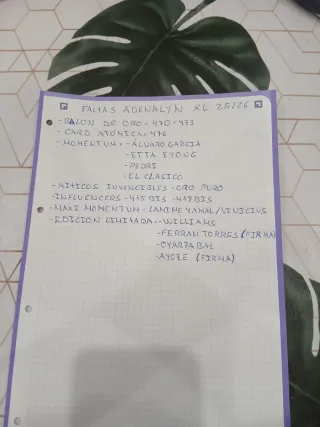 FALTAS ADENALYN XL 25/26
- BALON DE ORO - 470 - 473
- CARD ATÓMICA - 476
- MOMENTUM - - ÁLVARO GARCIA
- ETTA EYONG
- PEDRI
- EL CLASICO
- MITICOS INVENCIBLES - ORO PURO
- INFLUENCERS - 415 BIS - 417 BIS
- MAXI MOMENTUM - LAMINE YAMAL/VINICIUS
- EDICION LIMITADA - - WILLIAMS
- FERRAN TORRES (FIRMA)
- OYARZABAL
- AYOZE (FIRMA)